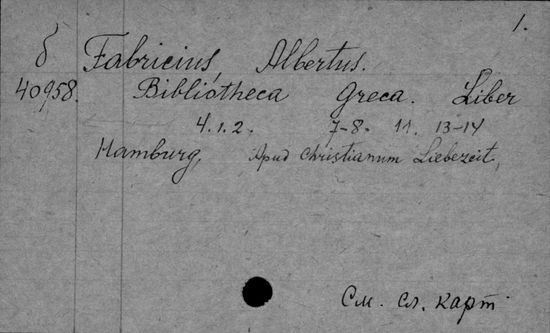 1.
б Fabricius, Albertus.
40958. Bibliotheca Greca. Liber
4.1.2. 7-8. 11. 13-14
Hamburg, Apud Christianum Liebezeit,
См. сл. карт